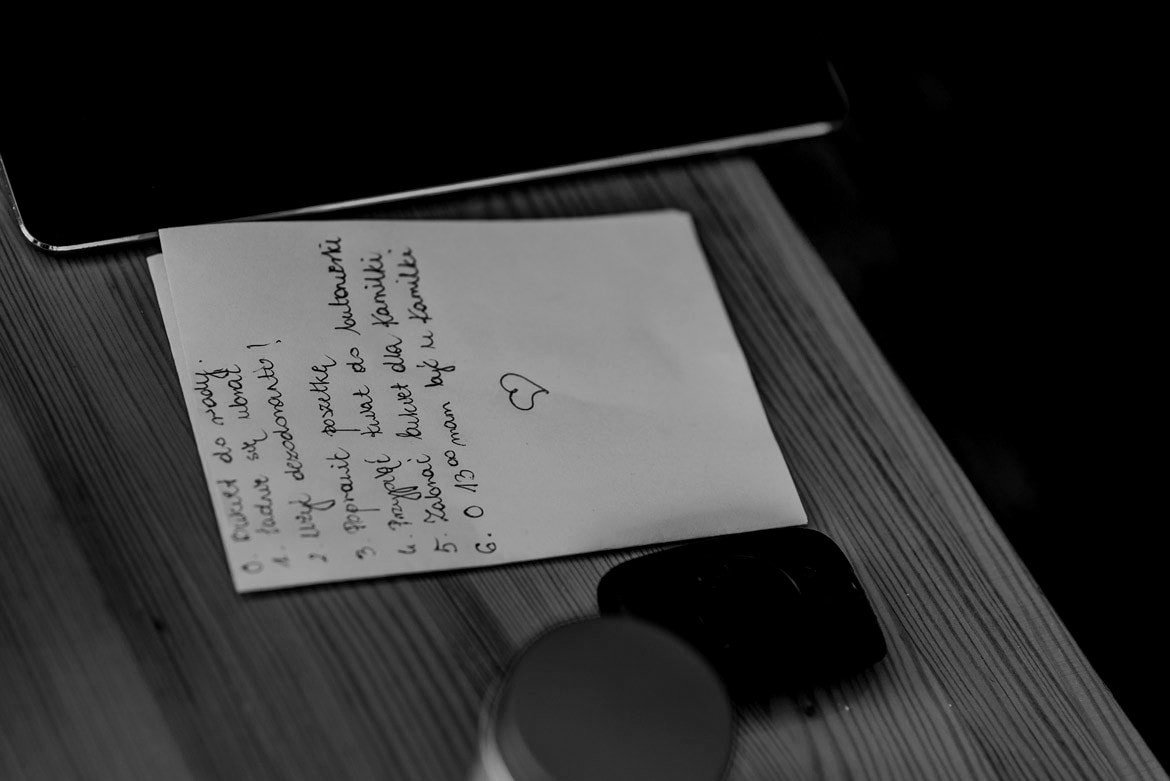 0. Bukiet do wody.
1. Ładnie się ubrać
2 Użyć dezodorantu!
3. Poprawić poszetkę
4. Przypiąć kwiat do butonierki
5. Zabrać bukiet dla Kamilki.
6. O 13⁰⁰ mam być u Kamilki